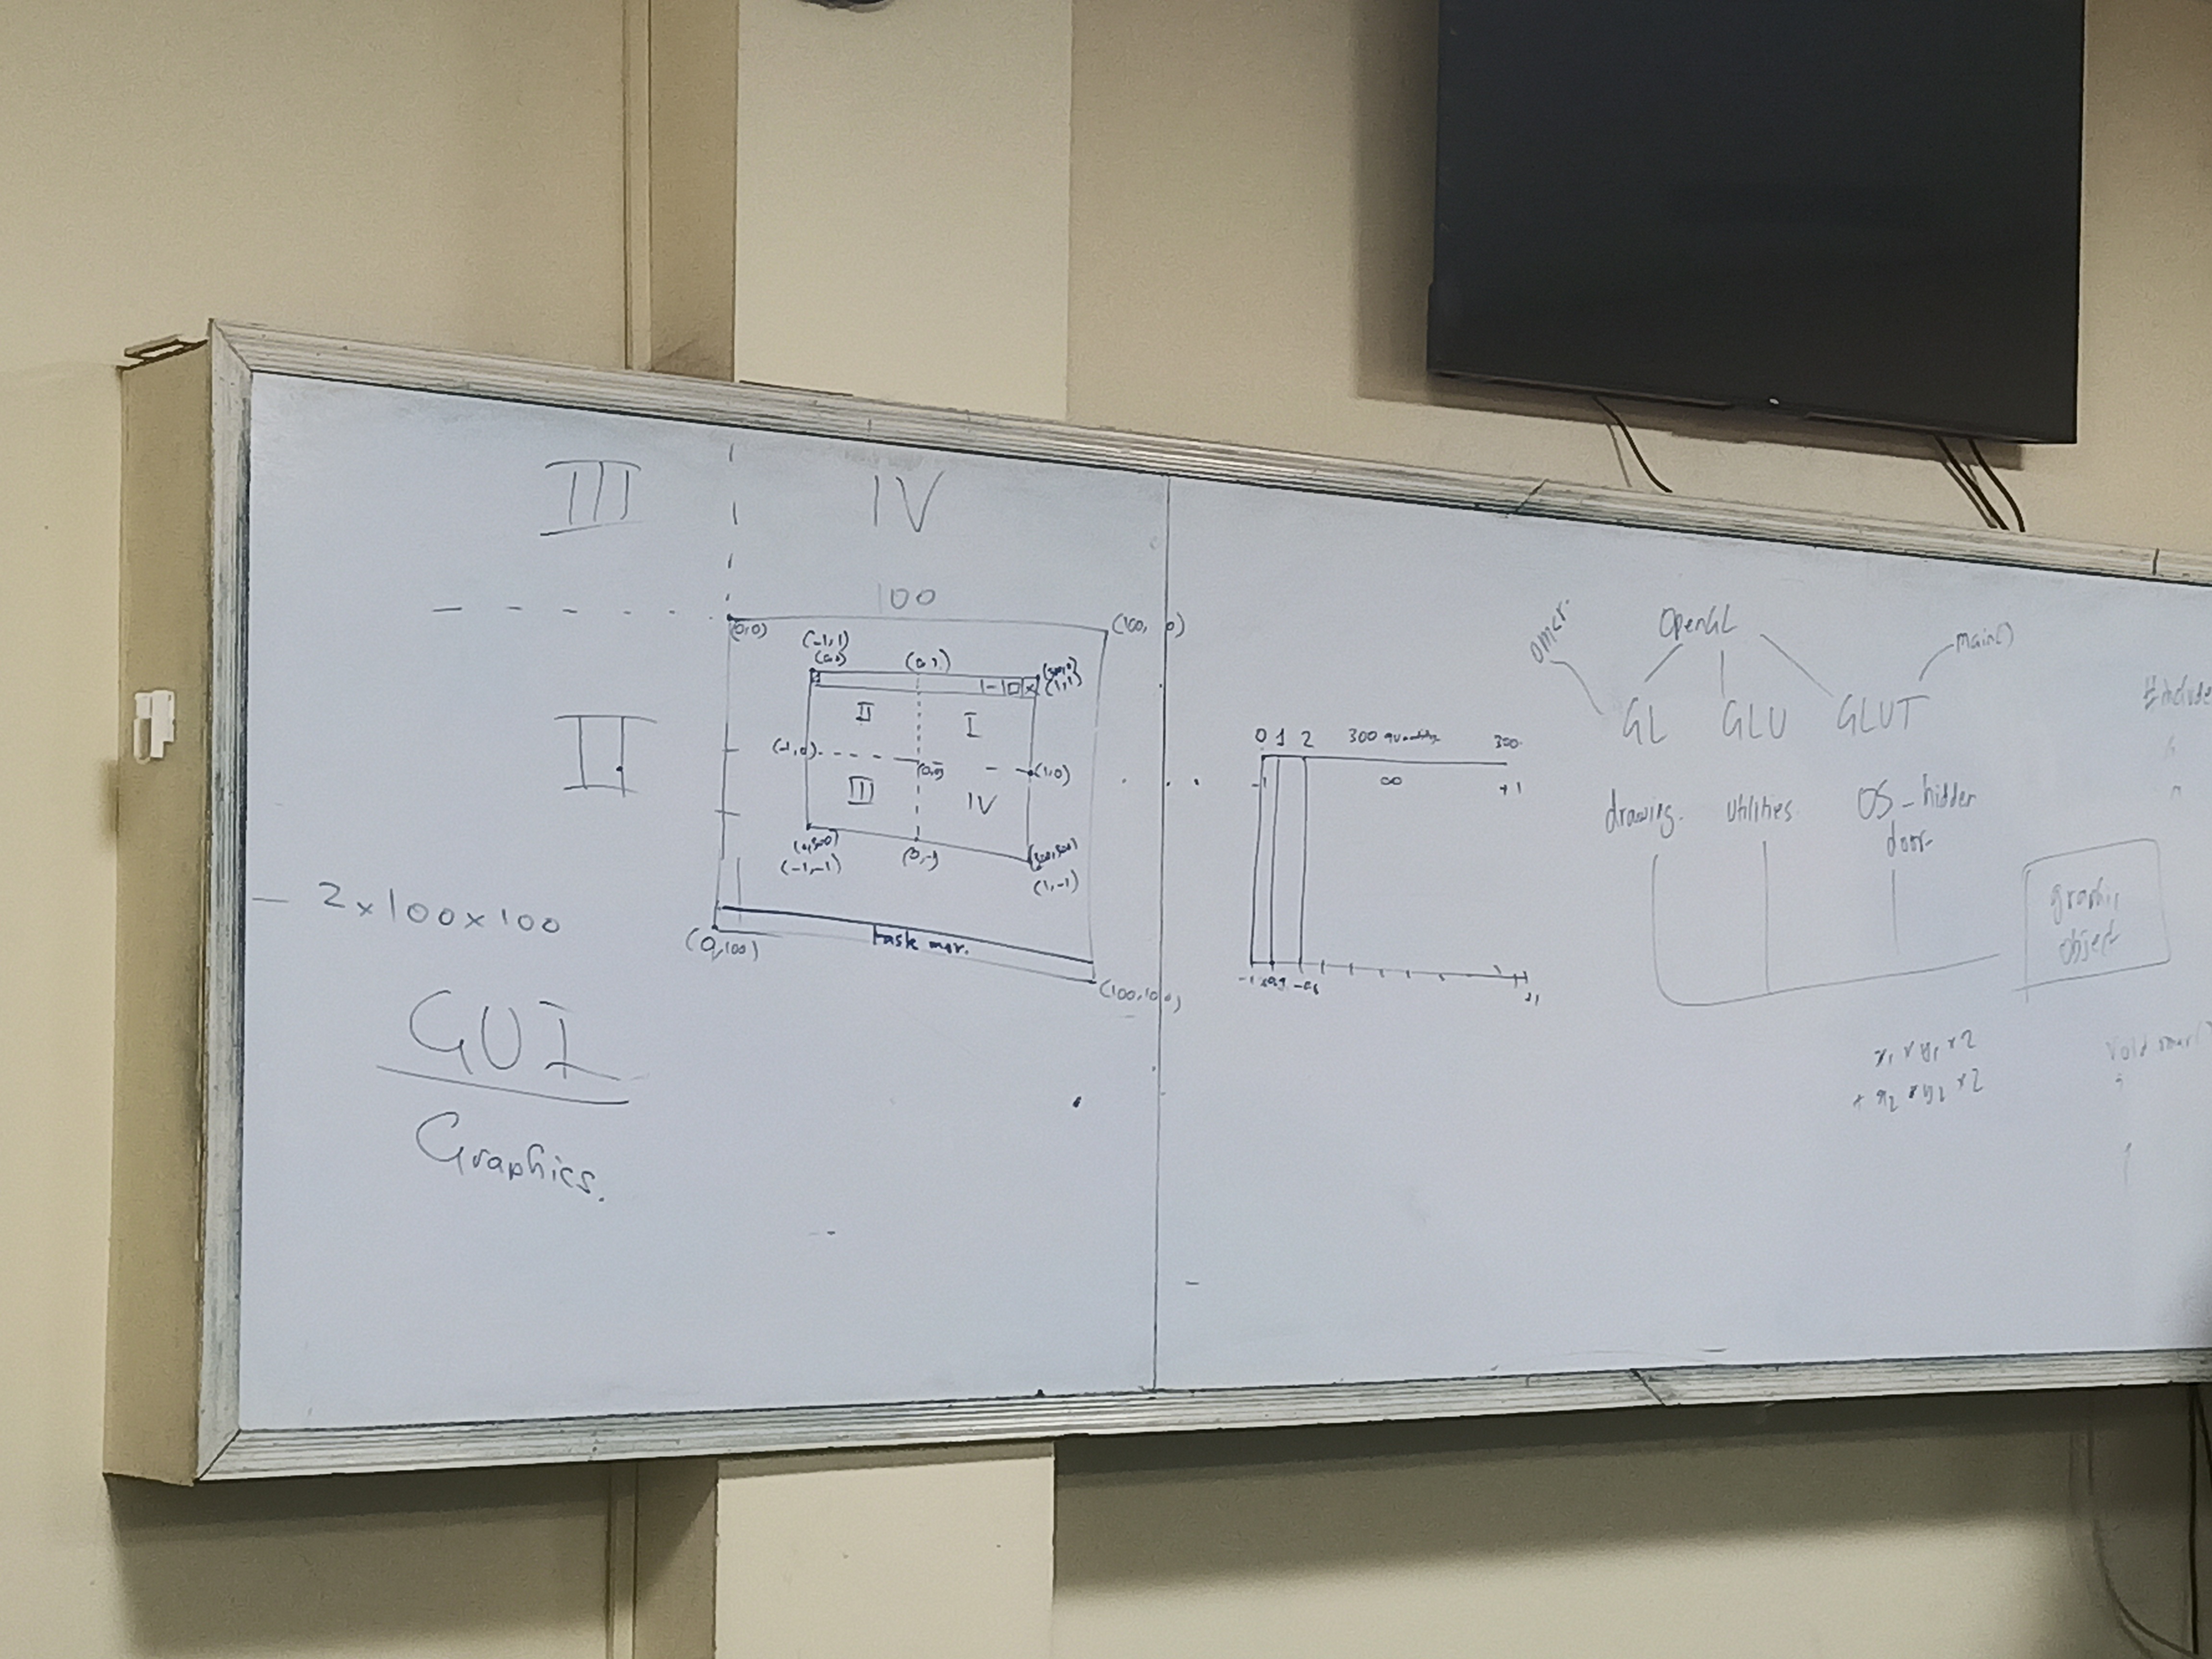 III
IV
100
(0,0)
(100, 0)
(-1,1)
(0,0)
(0,1)
(1,1)
II
I
(-1,0)
(0,0)
(1,0)
III
IV
(0,300)
(-1,-1)
(300,300)
(1,-1)
II
2x100x100
(0,100)
task
(100,100)
GUI
Graphics.
0 1 2 300 quantity 300
-1 ∞ +1
-1
OpenGL
main()
GL GLU GLUT
drawing. utilities. OS_hidden
door
graphic
object
x₁ x y₁ x 2
+ x₂ x y₂ x 2
#include
void